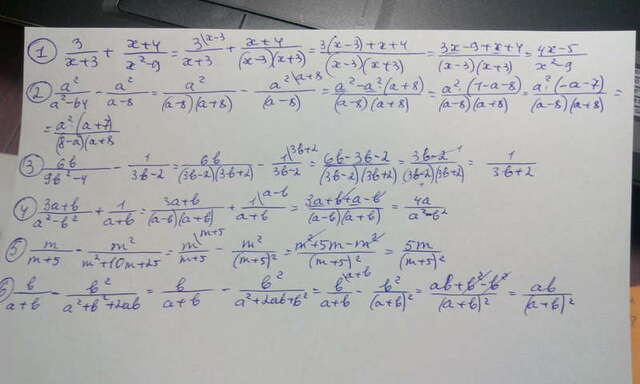 ① 3/(x+3) + (x+4)/(x²-9) = 3\x-3/(x+3) + (x+4)/((x-3)(x+3)) = (3(x-3)+x+4)/((x-3)(x+3)) = (3x-9+x+4)/((x-3)(x+3)) = (4x-5)/(x²-9)
② a²/(a²-64) - a²/(a-8) = a²/((a-8)(a+8)) - a²\a+8/(a-8) = (a²-a²(a+8))/((a-8)(a+8)) = (a²·(1-a-8))/((a-8)(a+8)) = (a²·(-a-7))/((a-8)(a+8)) =
= (a²·(a+7))/((8-a)(a+8)
③ 6b/(9b²-4) - 1/(3b-2) = 6b/((3b-2)(3b+2)) - 1\3b+2/(3b-2) = (6b-3b-2)/((3b-2)(3b+2)) = (3b-2)1/((3b-2)(3b+2)) = 1/(3b+2)
④ (3a+b)/(a²-b²) + 1/(a+b) = (3a+b)/((a-b)(a+b)) + 1\a-b/(a+b) = (3a+b+a-b)/((a-b)(a+b)) = 4a/(a²-b²)
⑤ m/(m+5) - m²/(m²+10m+25) = m\m+5/(m+5) - m²/(m+5)² = (m²+5m-m²)/(m+5)² = 5m/(m+5)²
⑥ b/(a+b) - b²/(a²+b²+2ab) = b/(a+b) - b²/(a²+2ab+b²) = b\a+b/(a+b) - b²/(a+b)² = (ab+b²-b²)/(a+b)² = ab/(a+b)²